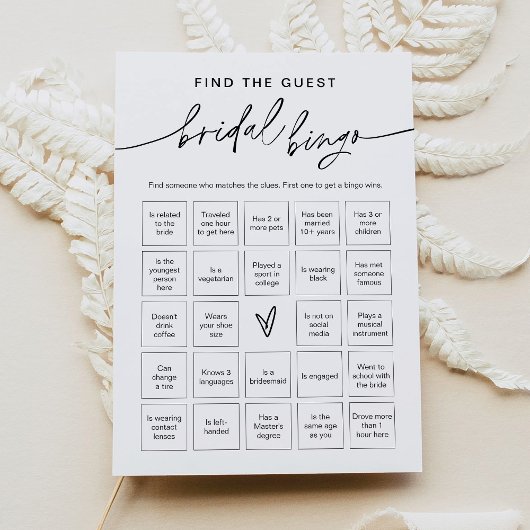 FIND THE GUEST
bridal bingo
Find someone who matches the clues. First one to get a bingo wins.
Is related
to the
bride
Traveled
one hour
to get here
Has 2 or
more pets
Has been
married
10+ years
Has 3 or
more
children
Is the
youngest
person
here
Is a
vegetarian
Played a
sport in
college
Is wearing
black
Has met
someone
famous
Doesn't
drink
coffee
Wears
your shoe
size
Is not on
social
media
Plays a
musical
instrument
Can
change
a tire
Knows 3
languages
Is a
bridesmaid
Is engaged
Went to
school with
the bride
Is wearing
contact
lenses
Is left-
handed
Has a
Master's
degree
Is the
same age
as you
Drove more
than 1
hour here